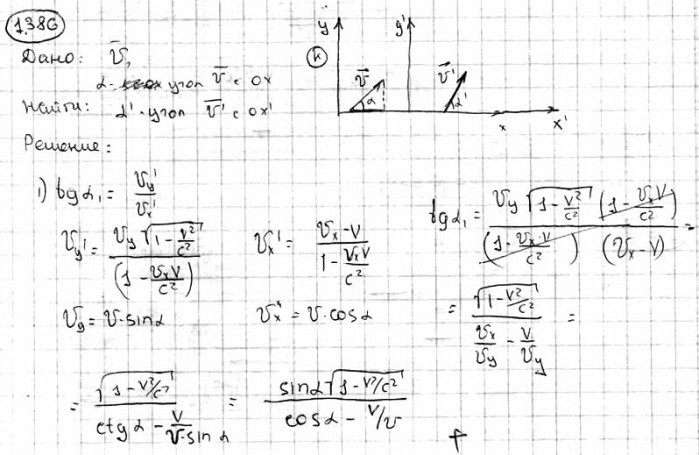 1.386
Дано: v̄,
α - угол v̄ с ox
Найти: α' - угол v̄' с ox'
Решение:
y y'
K
v̄ α v̄' α'
x x'
1) tgα₁ = v_y' / v_x'
v_y' = v_y √(1 - V²/c²) / (1 - v_x V/c²)
v_x' = (v_x - V) / (1 - v_x V/c²)
v_y = v·sinα
v_x = v·cosα
tgα₁ = v_y √(1 - V²/c²) (1 - v_x V/c²) / ((1 - v_x·V/c²) (v_x - V)) =
= √(1 - V²/c²) / (v_x/v_y - V/v_y) =
= √(1 - V²/c²) / (ctgα - V/(v·sinα)) = sinα √(1 - V²/c²) / (cosα - V/v)